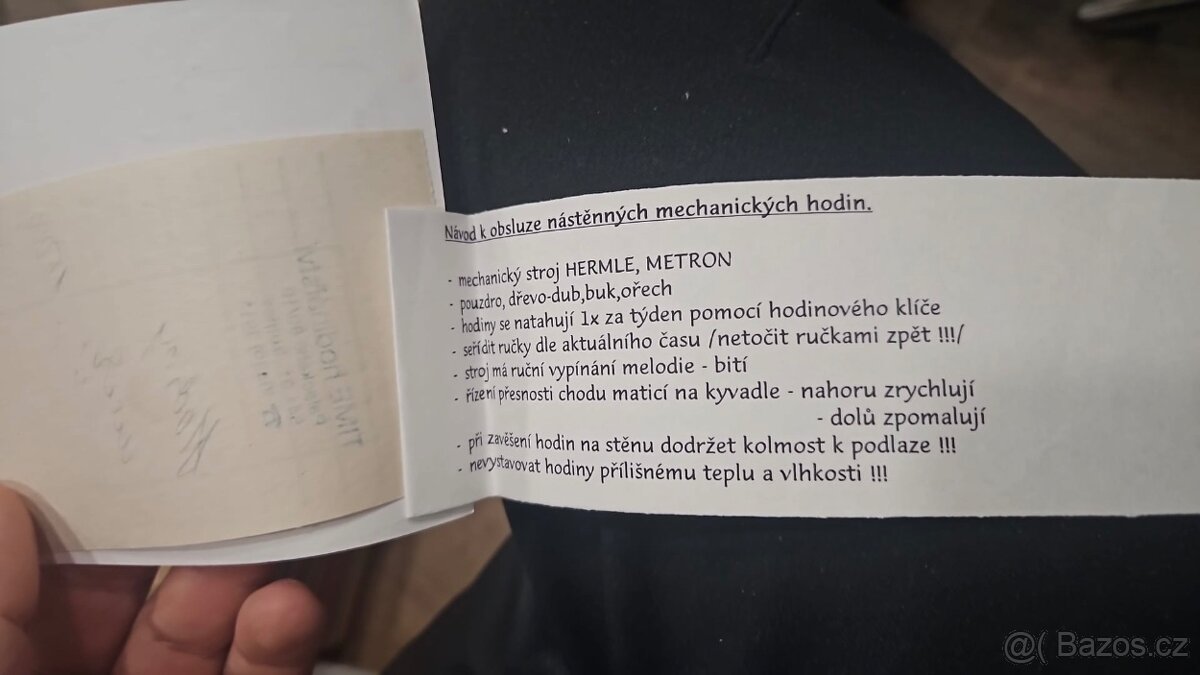 Návod k obsluze nástěnných mechanických hodin.
- mechanický stroj HERMLE, METRON
- pouzdro, dřevo-dub,buk,ořech
- hodiny se natahují 1x za týden pomocí hodinového klíče
- seřídit ručky dle aktuálního času /netočit ručkami zpět !!!/
- stroj má ruční vypínání melodie - bití
- řízení přesnosti chodu maticí na kyvadle - nahoru zrychlují
- dolů zpomalují
- při zavěšení hodin na stěnu dodržet kolmost k podlaze !!!
- nevystavovat hodiny přílišnému teplu a vlhkosti !!!
@( Bazos.cz